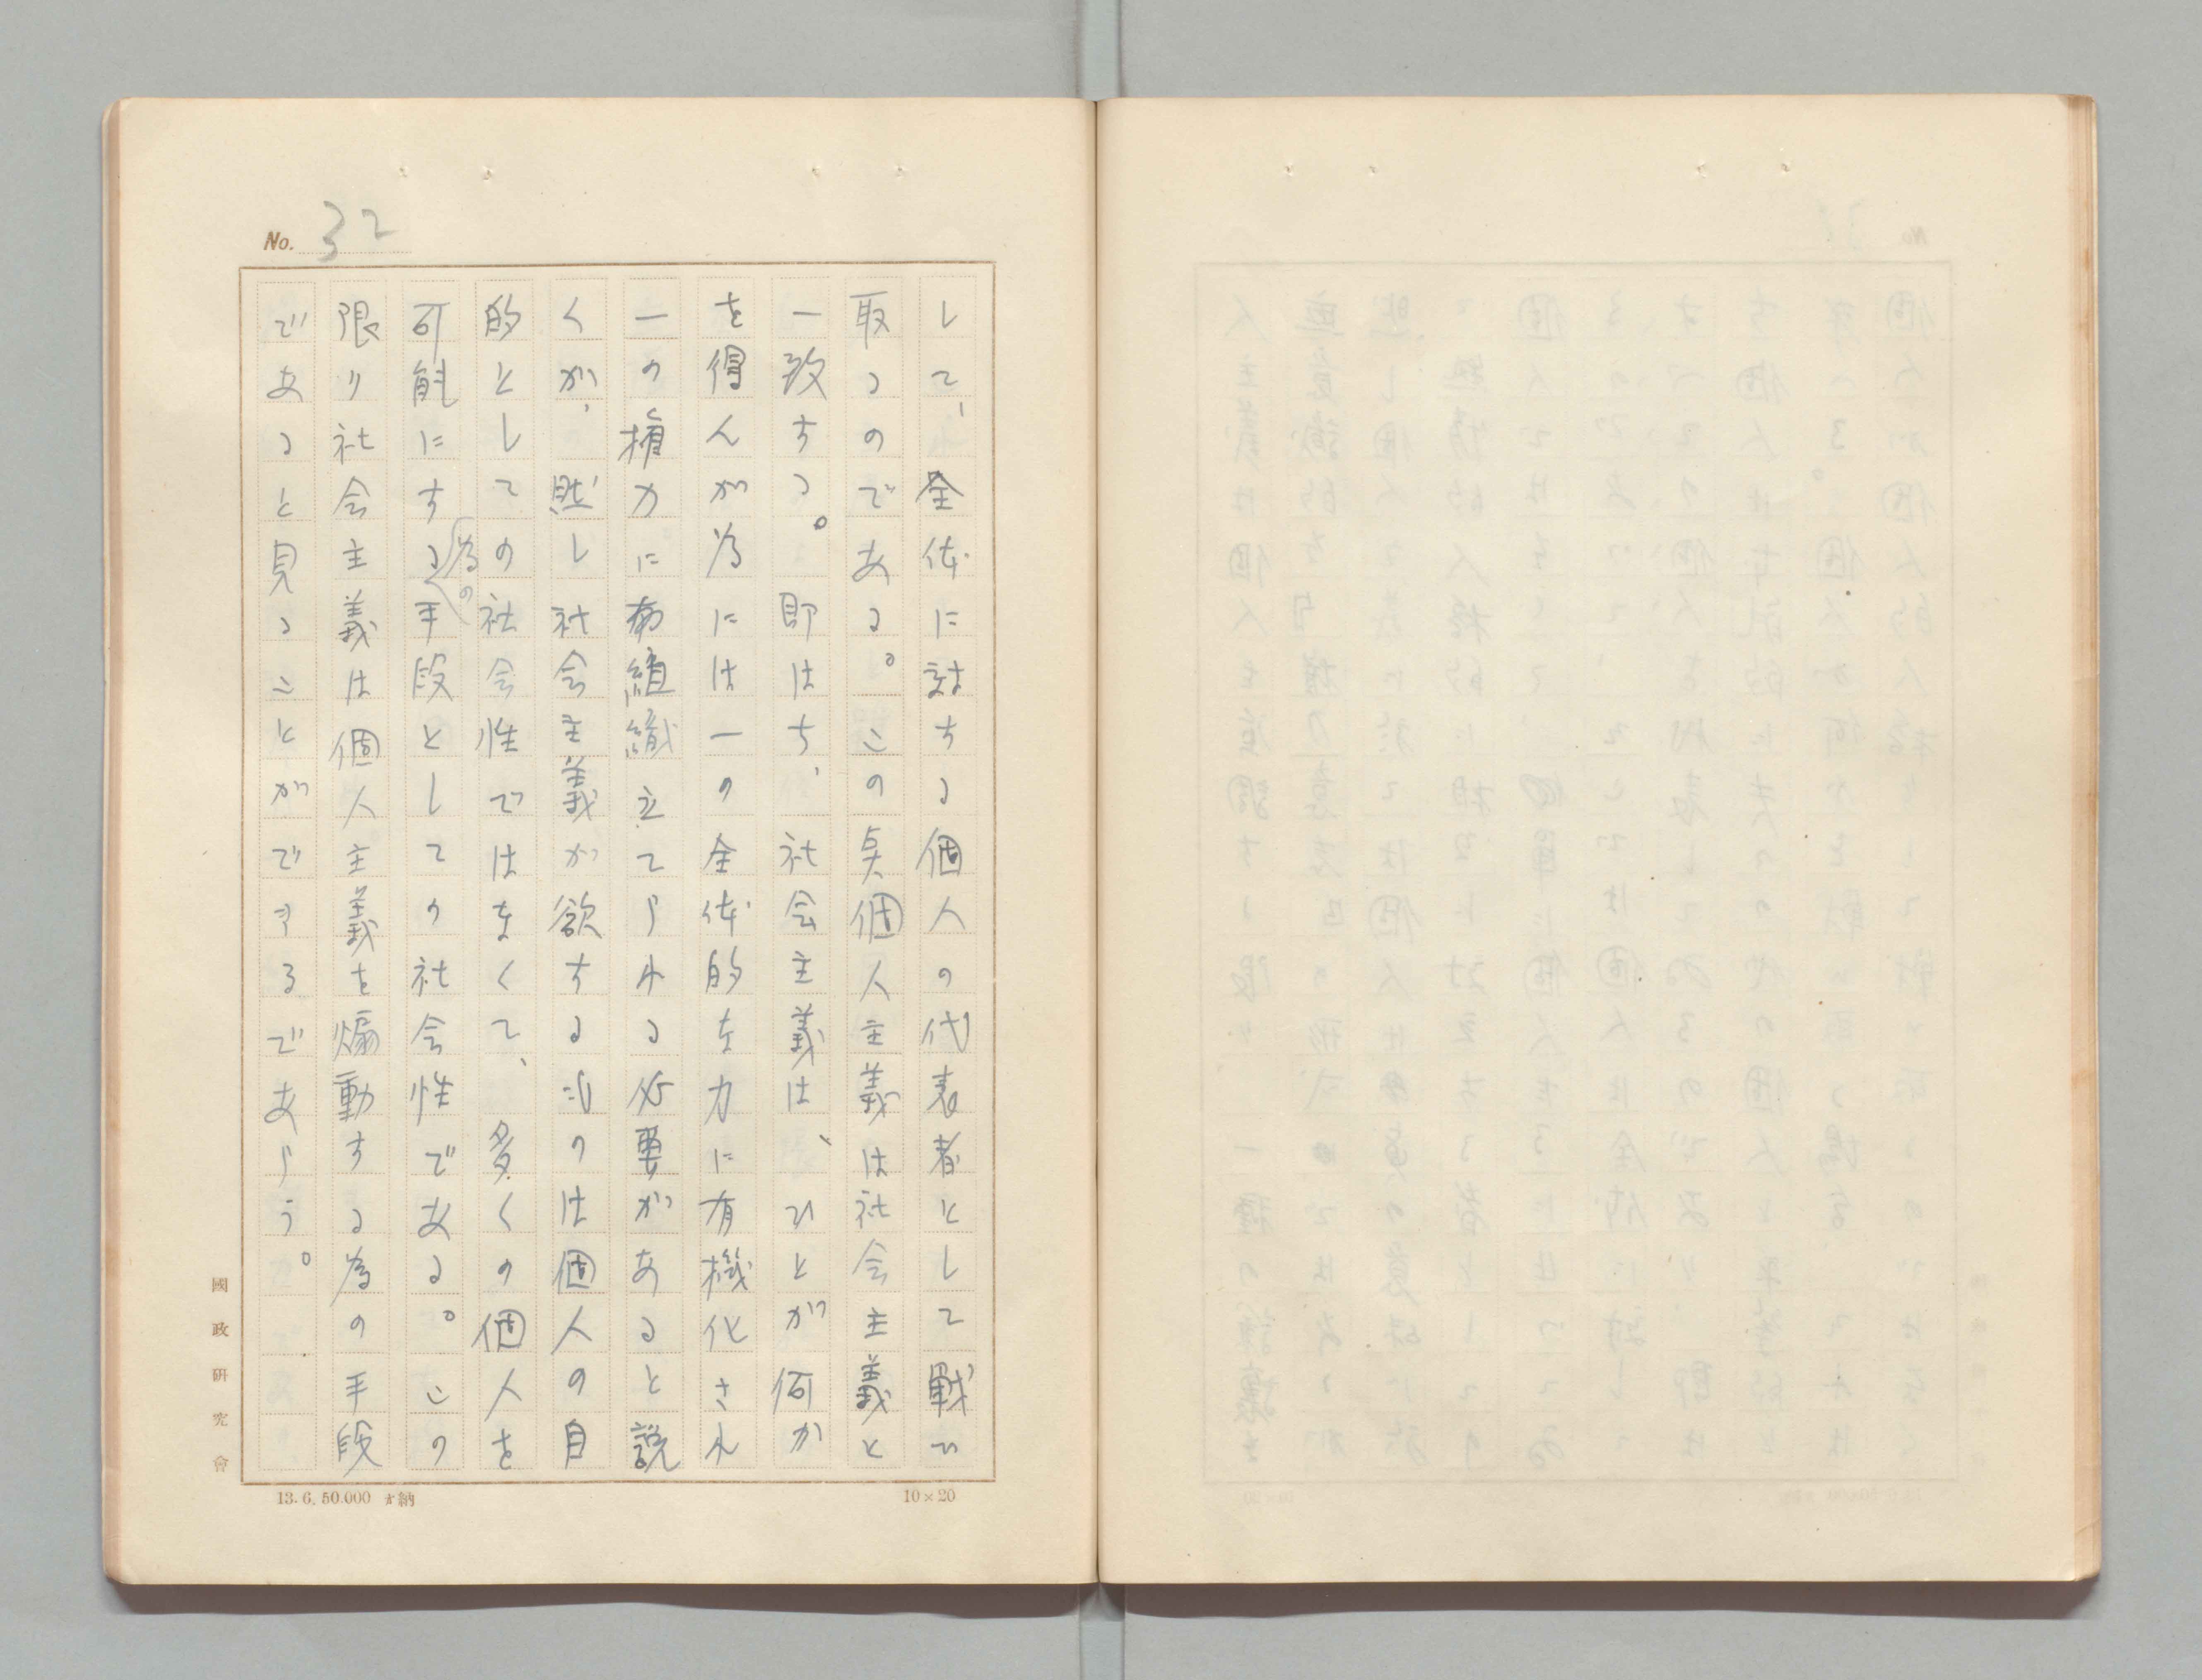 No. 32
して、全体に対する個人の代表者として戦ひ
取るのである。この点個人主義は社会主義と
一致する。即はち、社会主義は、ひとが何か
を得んが為には一の全体的な力に有機化され
一の権力に組織立てられる必要があると説
くが、然し社会主義が欲するものは個人の目
的としての社会性ではなくて、多くの個人を
可能にする為の手段としての社会性である。この
限り社会主義は個人主義を煽動する為の手段
であると見ることができるであらう。
國政研究會
13.6.50.000 納
10×20